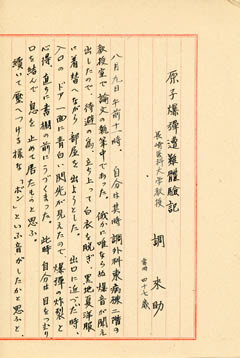 原子爆彈遭難體驗記
長崎医科大学教授
調 来助
當時 四十七歳
八月九日午前十一時、自分は其時調外科東病棟二階の
教授室で論文の執筆中であった。微かに唯ならぬ爆音が聞え
出したので、待避の為、立ち上って白衣を脱ぎ、黒地夏洋服
に着替へながら部屋を出ようとした。出口に近づいた時、
入口のドア一面に青白い閃光が見えたので、爆彈の炸裂と
心得、直ちに書棚の前にうづくまった。此時自分は目をつむり
口を結んで息を止めて居たものと思ふ。
續いて壓へつける樣な「ボン」といふ音がしたかと思ふと、